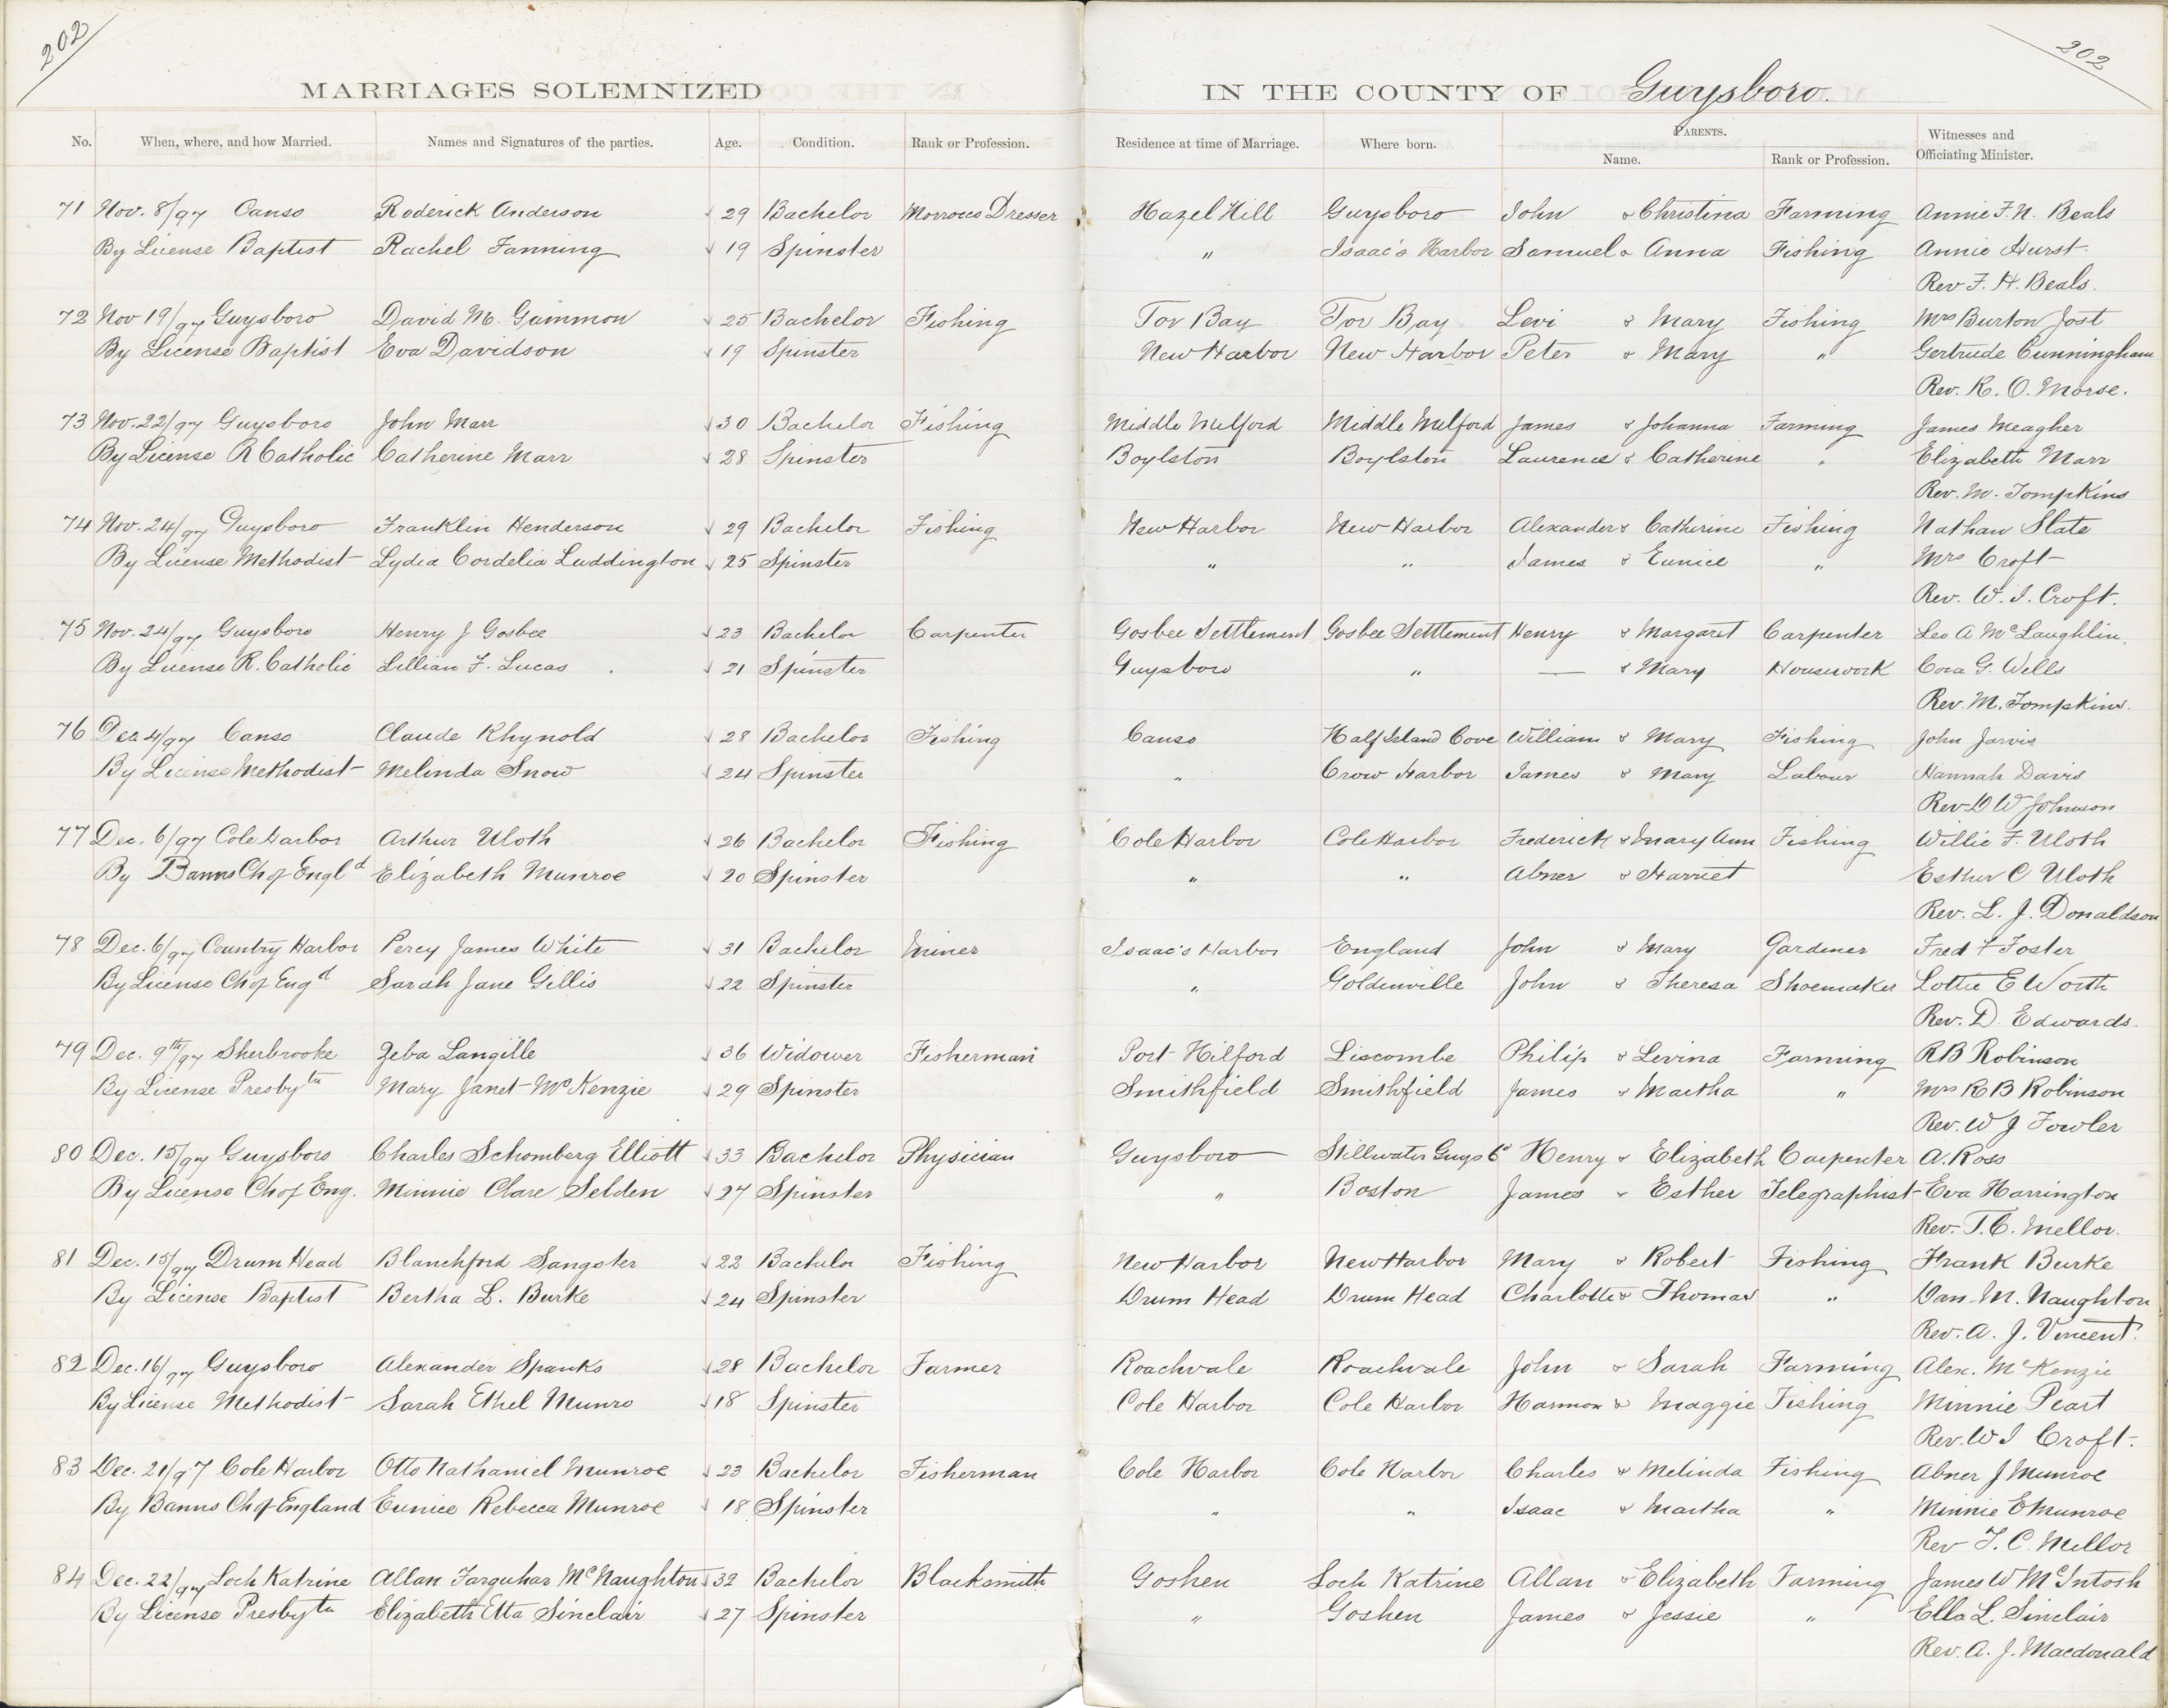 202
202
MARRIAGES SOLEMNIZED IN THE COUNTY OF Guysboro.
No. When, where, and how Married. Names and Signatures of the parties. Age. Condition. Rank or Profession. Residence at time of Marriage. Where born. PARENTS. Name. Rank or Profession. Witnesses and Officiating Minister.
71 Nov. 8/97 Canso Roderick Anderson 29 Bachelor Morroco Dresser Hazel Hill Guysboro John & Christina Farming Annie F. N. Beals
By License Baptist Rachel Fanning 19 Spinster " Isaac's Harbor Samuel & Anna Fishing Annie Hurst
Rev F. H. Beals.
72 Nov 19/97 Guysboro David M. Gammon 25 Bachelor Fishing Tor Bay Tor Bay Levi & Mary Fishing Mrs Burton Jost
By License Baptist Eva Davidson 19 Spinster New Harbor New Harbor Peter & Mary " Gertrude Cunningham
Rev. R. O. Morse.
73 Nov. 22/97 Guysboro John Marr 30 Bachelor Fishing Middle Melford Middle Melford James & Johanna Farming James Meagher
By License R Catholic Catherine Marr 28 Spinster Boylston Boylston Laurence & Catherine " Elizabeth Marr
Rev. M. Tompkins
74 Nov. 24/97 Guysboro Franklin Henderson 29 Bachelor Fishing New Harbor New Harbor Alexander & Catherine Fishing Nathan Slate
By License Methodist Lydia Cordelia Luddington 25 Spinster " " James & Eunice " Mrs Croft
Rev. W. I. Croft.
75 Nov. 24/97 Guysboro Henry J Gosbee 23 Bachelor Carpenter Gosbee Settlement Gosbee Settlement Henry & Margaret Carpenter Leo A McLaughlin.
By License R. Catholic Lillian F. Lucas 21 Spinster Guysboro " — & Mary Housework Cora G. Wells
Rev. M. Tompkins.
76 Dec. 4/97 Canso Claude Rhynold 28 Bachelor Fishing Canso Half Island Cove William & Mary Fishing John Jarvis
By License Methodist Melinda Snow 24 Spinster " Crow Harbor James & Mary Labour Hannah Davis
Rev. D W Johnson
77 Dec. 6/97 Cole Harbor Arthur Uloth 26 Bachelor Fishing Cole Harbor Cole Harbor Frederick & Mary Ann Fishing Willie F. Uloth
By Banns Ch of Engld Elizabeth Munroe 20 Spinster " " Abner & Harriet Esther C Uloth
Rev. L. J. Donaldson
78 Dec. 6/97 Country Harbor Percy James White 31 Bachelor Miner Isaac's Harbor England John & Mary Gardener Fred F Foster
By License Ch of Engd Sarah Jane Gillis 22 Spinster " Goldenville John & Theresa Shoemaker Lottie E Worth
Rev. D. Edwards.
79 Dec. 9th/97 Sherbrooke Zeba Langille 36 Widower Fisherman Port Hilford Liscombe Philip & Levina Farming RB Robinson
By License Presbytn Mary Janet McKenzie 29 Spinster Smithfield Smithfield James & Martha " Mrs R B Robinson
Rev. W J Fowler
80 Dec. 15/97 Guysboro Charles Schomberg Elliott 33 Bachelor Physician Guysboro Stillwater Guys Co Henry & Elizabeth Carpenter A. Ross
By License Ch of Eng. Minnie Clare Selden 27 Spinster " Boston James & Esther Telegraphist Eva Harrington
Rev. T. C. Mellor.
81 Dec. 15/97 Drum Head Blanchford Sangster 22 Bachelor Fishing New Harbor New Harbor Mary & Robert Fishing Frank Burke
By License Baptist Bertha L. Burke 24 Spinster Drum Head Drum Head Charlotte & Thomas " Dan. M. Naughton
Rev. A. J. Vincent.
82 Dec. 16/97 Guysboro Alexander Spanks 28 Bachelor Farmer Roachvale Roachvale John & Sarah Farming Alex. McKenzie
By License Methodist Sarah Ethel Munro 18 Spinster Cole Harbor Cole Harbor Harmon & Maggie Fishing Minnie Peart
Rev. W I Croft.
83 Dec. 21/97 Cole Harbor Otto Nathaniel Munroe 23 Bachelor Fisherman Cole Harbor Cole Harbor Charles & Melinda Fishing Abner J Munroe
By Banns Ch of England Eunice Rebecca Munroe 18 Spinster " " Isaac & Martha " Minnie E Munroe
Rev T. C. Mellor
84 Dec. 22/97 Loch Katrine Allan Farquhar McNaughton 32 Bachelor Blacksmith Goshen Loch Katrine Allan & Elizabeth Farming James W McIntosh
By License Presbytn Elizabeth Etta Sinclair 27 Spinster " Goshen James & Jessie " Ella L. Sinclair
Rev. A. J. Macdonald